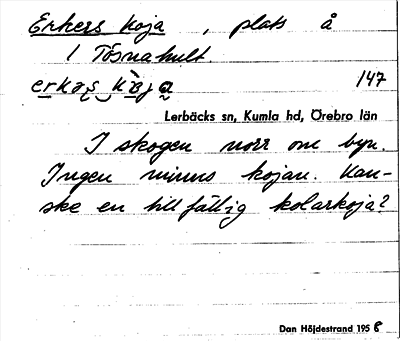 Erkers koja, plats å
1 Tösnahult.
147
Lerbäcks sn, Kumla hd, Örebro län
I skogen norr om byn.
Ingen minns kojan. Kan-
ske en tillfällig kolarkoja?
Dan Höjdestrand 1958